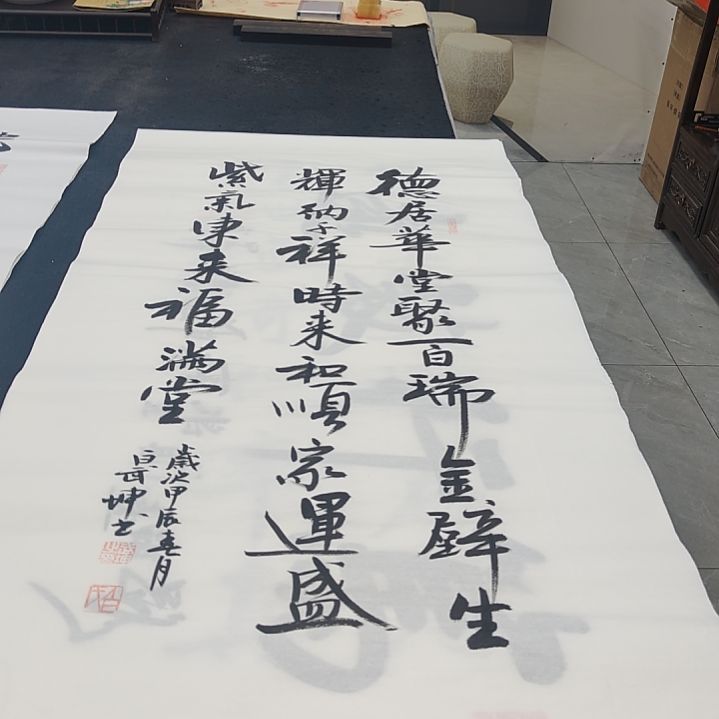 德居華堂聚百瑞金壁生
輝納千祥時来和順家運盛
紫氣東来福滿堂
歲次甲辰春月
白坤书